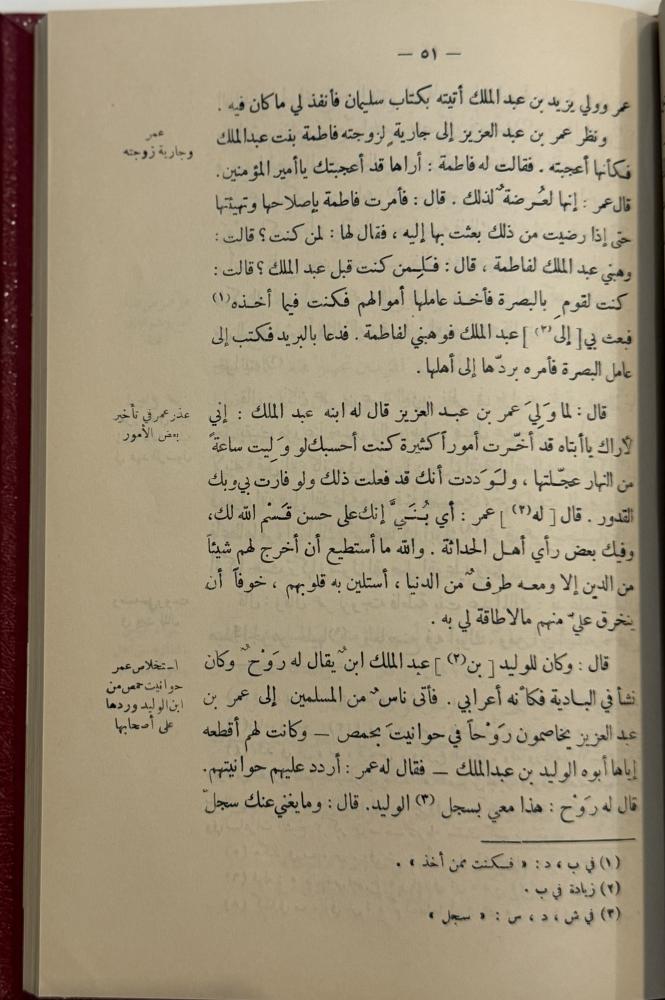 — ٥١ —
عمر وولي يزيد بن عبد الملك أتيته بكتاب سليمان فأنفذ لي ما كان فيه .
عمر
وجارية زوجته
ونظر عمر بن عبد العزيز إلى جاريةٍ لزوجته فاطمة بنت عبدالملك
فكأنها أعجبته . فقالت له فاطمة : أراها قد أعجبتك ياأمير المؤمنين.
قال عمر : إنها لعُرضةٌ لذلك . قال : فأمرت فاطمة بإصلاحها وتهيئتها
حتى إذا رضيت من ذلك بعثت بها إليه ، فقال لها : لمن كنت ؟ قالت :
وهبني عبد الملك لفاطمة ، قال : فَلِمن كنت قبل عبد الملك ؟ قالت :
كنت لقومٍ بالبصرة فأخذ عاملها أموالهم فكنت فيما أخذه(١)
فبعث بي [ إلى(٢) ] عبد الملك فوهبني لفاطمة . فدعا بالبريد فكتب إلى
عامل البصرة فأمره بردّها إلى أهلها .
عذر عمر في تأخير
بعض الأمور
قال : لما وَلِيَ عمر بن عبد العزيز قال له ابنه عبد الملك : إني
لأراك ياأبتاه قد أخّرت أموراً كثيرة كنت أحسبك لو وَليت ساعةً
من النهار عجّلتها ، ولَوَددت أنك قد فعلت ذلك ولو فارت بي وبك
القدور . قال [ له(٢) ] عمر : أي بُنَيَّ إنك على حسن قَسْم الله لك،
وفيك بعض رأي أهل الحداثة . والله ما أستطيع أن أخرج لهم شيئاً
من الدين إلا ومعه طرفٌ من الدنيا ، أستلين به قلوبهم ، خوفاً أن
ينخرق عليّ منهم مالاطاقة لي به .
استخلاص عمر
حوانيت حمص من
ابن الوليد وردها
على أصحابها
قال : وكان للوليد [ بن(٢) ] عبد الملك ابنٌ يقال له رَوْحٌ وكان
نشأ في البادية فكأنه أعرابي . فأتى ناسٌ من المسلمين إلى عمر بن
عبد العزيز يخاصمون رَوْحاً في حوانيتَ بحمص — وكانت لهم أقطعه
إياها أبوه الوليد بن عبدالملك — فقال له عمر : أردد عليهم حوانيتهم.
قال له رَوْح : هذا معي بسجل (٣) الوليد. قال : وما يغني عنك سجلّ
(١) في ب ، د : « فكنت ممن أخذ » .
(٢) زيادة في ب .
(٣) في ش ، د ، س : « سجل »